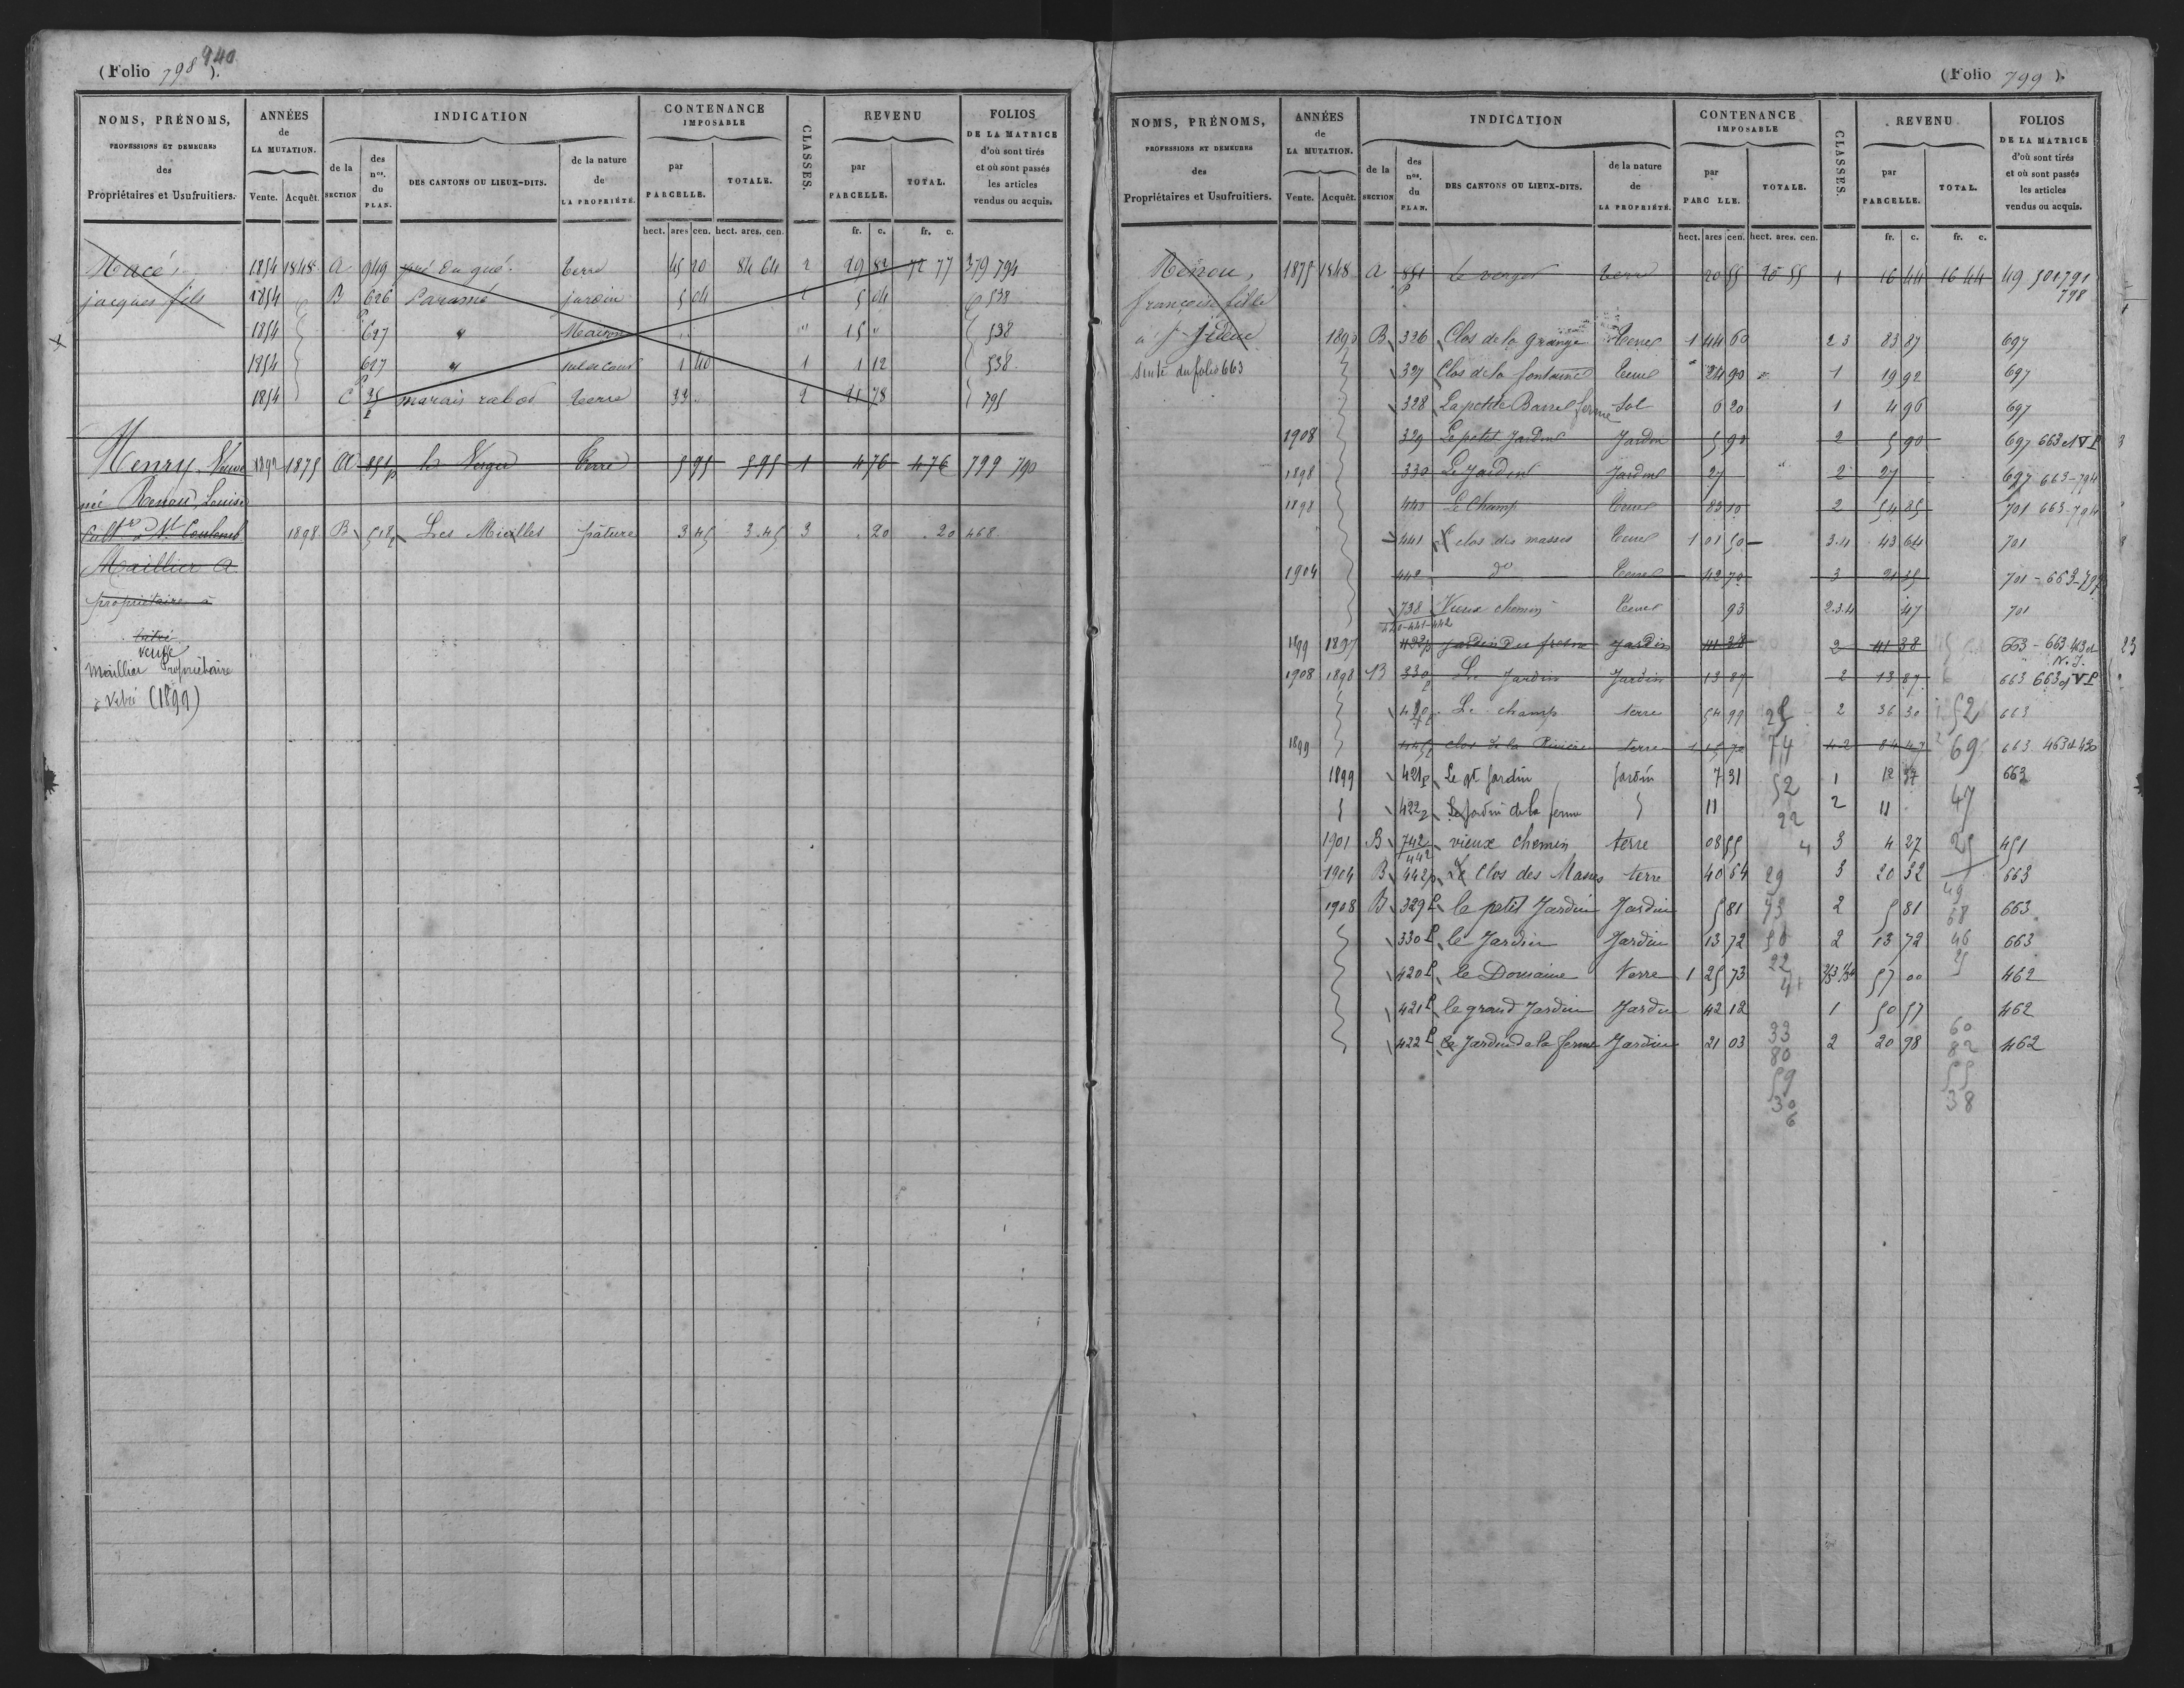 (Folio 798 ). 940
NOMS, PRÉNOMS, PROFESSIONS ET DEMEURES des Propriétaires et Usufruitiers.
ANNÉES de LA MUTATION. Vente. Acquêt.
INDICATION
de la SECTION
des nos. du PLAN.
DES CANTONS OU LIEUX-DITS.
de la nature de LA PROPRIÉTÉ.
CONTENANCE IMPOSABLE
par PARCELLE. TOTALE.
CLASSES.
REVENU
par PARCELLE. TOTAL.
FOLIOS DE LA MATRICE d'où sont tirés et où sont passés les articles vendus ou acquis.
hect. ares cen. hect. ares. cen. fr. c. fr. c.
Macé, 1854 1848 A 949 pré du gué. terre 45 20 84 64 2 29 83 72 77 379 794
jacques fils 1854 B 626 Paramé jardin 5 04 2 5 04 538
1854 627 " Maison " 15 " 538
1854 627 " sol et cour 1 40 1 1 12 538
1854 C 35 p marais rabot terre 33 2 21 78 795
Henry, Veuve 1892 1875 A 851p le Verger terre 5 95 5 95 1 4 76 4 76 799 790
née Renou, Louise
Cultre à St Coulomb 1898 B 518p Les Mielles pature 3 45 3 45 3 . 20 . 20 468
Maillier A
propriétaire à
Vitré
veuve
Maillier Propriétaire
à Vitré (1899)
(Folio 799 ).
NOMS, PRÉNOMS, PROFESSIONS ET DEMEURES des Propriétaires et Usufruitiers.
ANNÉES de LA MUTATION. Vente. Acquêt.
INDICATION
de la SECTION
des nos. du PLAN.
DES CANTONS OU LIEUX-DITS.
de la nature de LA PROPRIÉTÉ.
CONTENANCE IMPOSABLE
par PARC LLE. TOTALE.
CLASSES.
REVENU
par PARCELLE. TOTAL.
FOLIOS DE LA MATRICE d'où sont tirés et où sont passés les articles vendus ou acquis.
hect. ares cen. hect. ares. cen. fr. c. fr. c.
Renou, 1875 1848 A 851 p le verger terre 20 55 20 55 1 16 44 16 44 49 501 791 798
françoise fille
1890 B 326 Clos de la grange terre 1 44 60 2 3 83 87 697
Suite du folio 663 327 Clos de la fontaine terre 24 90 1 19 92 697
328 La petite Barre ferme Sol 6 20 1 4 96 697
1908 329 Le petit Jardin Jardin 5 90 2 5 90 697 663 et VP
1898 330 Le Jardin Jardin 27 2 27 697 663-794
1898 440 Le Champ terre 83 10 2 54 85 701 663-794
441 Le clos des masses terre 1 01 50 3.4 43 64 701
1904 442 do terre 42 70 3 21 35 701-663-797
738 Vieux chemin terre 93 2.3.4 47 701
440-441-442
1899 1897 422p Jardin du fresne Jardin 41 38 2 41 38 663-663 463 et N.J.
1908 1898 B 330p Le Jardin Jardin 13 87 2 13 87 663 663 et VP
440p Le champ terre 54 99 2 36 30 663
1899 445p clos de la Rivière terre 1 45 70 4 2 84 47 663 463 et 430
1899 421p Le pt Jardin Jardin 7 31 1 12 37 663
422p Le Jardin de la ferme 11 2 11
1901 B 742 vieux chemin terre 08 55 3 4 27 451
442
1904 B 442p Le Clos des Masses terre 40 64 3 20 32 663
1908 B 329P le petit Jardin Jardin 5 81 2 5 81 663
330P le Jardin Jardin 13 72 2 13 72 663
420P le Domaine terre 1 25 73 57 00 462
421P le grand Jardin Jardin 42 12 1 50 57 462
422P Le Jardin de la ferme Jardin 21 03 2 20 98 462